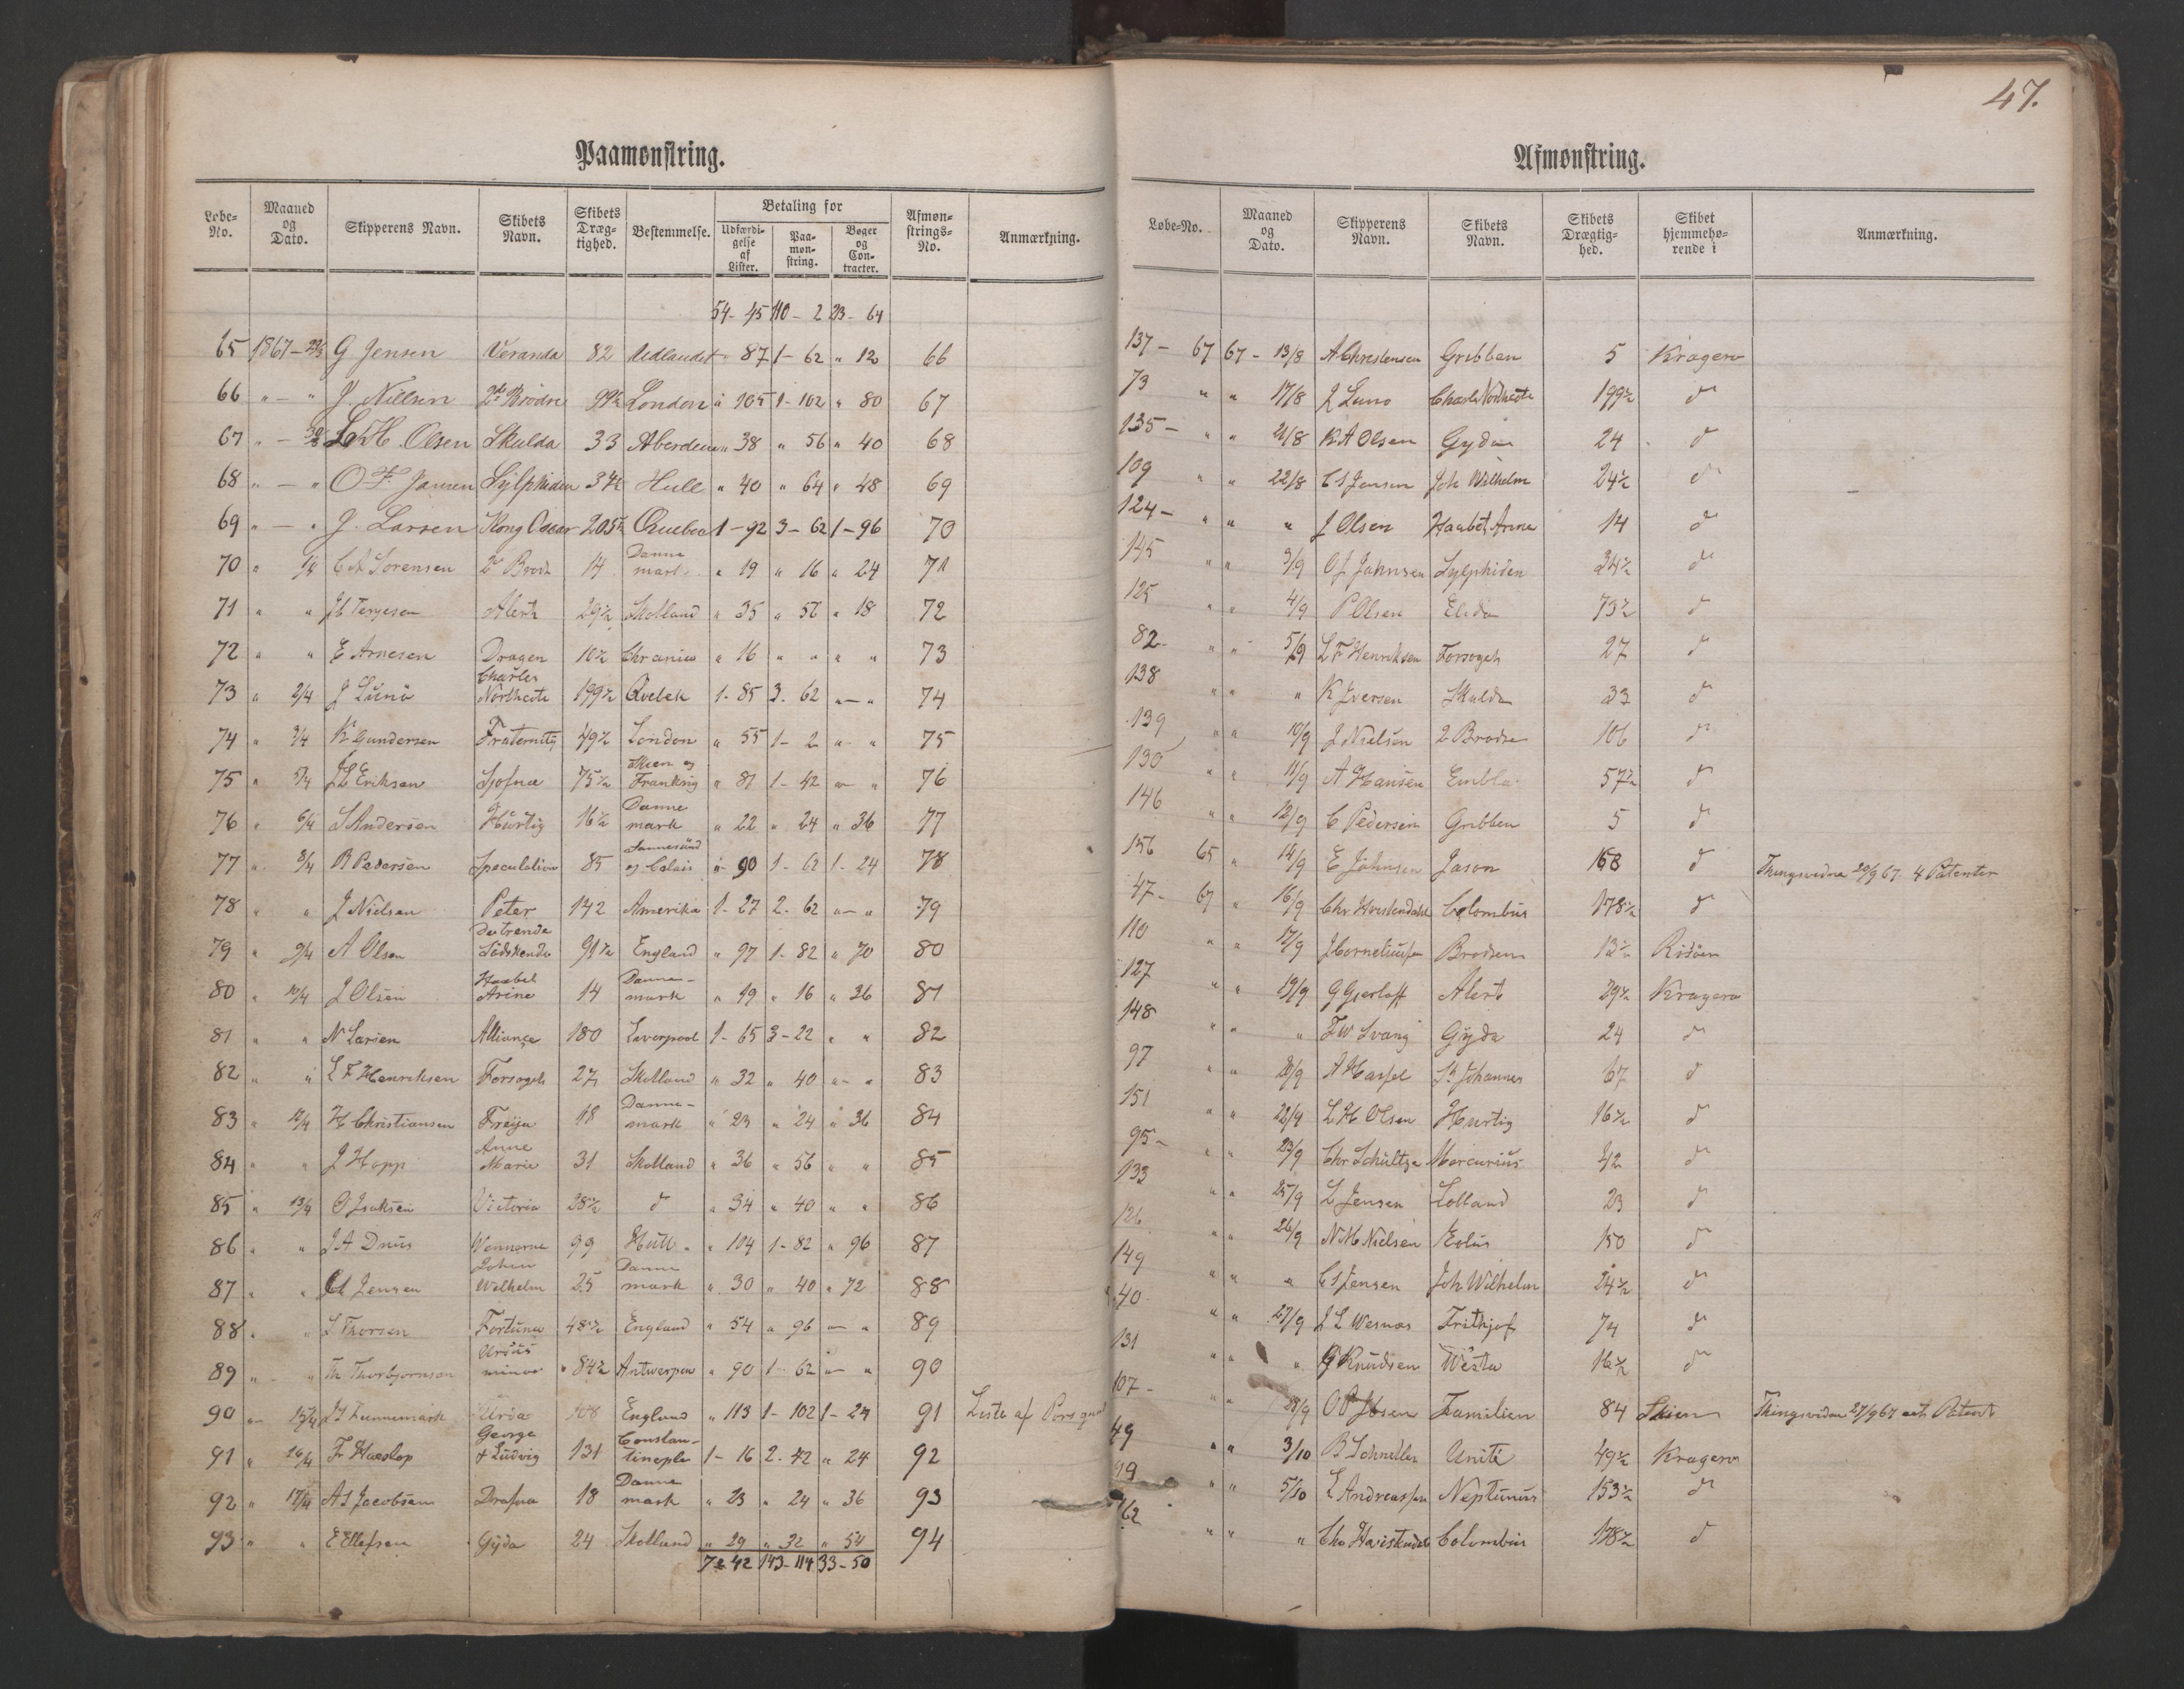 47.
Paamønstring.
Løbe-No. Maaned og Dato. Skipperens Navn. Skibets Navn. Skibets Dræg-tighed. Bestemmelse. Betaling for Udfærdi-gelse af Lister. Paa-møn-string. Bøger og Con-tracter. Afmøn-strings-No. Anmærkning.
54-45 110-2 23-64
65 1867-29/3 G Jensen Veranda 82 Udlandet " 87 1-62 " 12 66
66 " - " J. Nillsen 2de Brødre 99½ London " 105 1-102 " 80 67
67 " - 30/3 L H. Olsen Skulda 33 Aberdeen " 38 " 56 " 40 68
68 " - " O F. Jansen Sylphiden 34½ Hull " 40 " 64 " 48 69
69 " - " J. Larsen Kong Oscar 205½ Quebec 1-92 3-62 1-96 70
70 " 1/4 C A Sørensen 2de Brødr 14 Danne mark " 19 " 16 " 24 71
71 " " Jb Terjesen Alert 29½ Skotland " 35 " 56 " 18 72
72 " " E Arnesen Dragen 10½ Chrania " 16 " " " " 73
73 " 2/4 J Lünø Charles Northcote 199½ Qvebek 1-85 3-62 "-" 74
74 " 3/4 K Gundersen Fraternity 49½ London " 55 1-2 "-" 75
75 " 5/4 J L Eriksen Sjofna 75½ Skien og Frankrig " 81 1-42 "-" 76
76 " 6/4 S Andersen Hurtig 16½ Danne mark " 22 " 24 " 36 77
77 " 8/4 R Pedersen Speculation 85 Sannesund og Calais " 90 1-62 1-24 78
78 " " J Nielsen Peter 142 Amerika 1-27 2-62 "-" 79
79 " 9/4 A Olsen De trende Södskende 91½ England " 97 1-82 " 70 80
80 " 10/4 J Olsen Haabet Arine 14 Danne-mark " 19 " 16 " 36 81
81 " " N Larsen Alliance 180 Liverpool 1-65 3-22 " " 82
82 " " L F Henriksen Forsøget 27 Skotland " 32 " 40 "-" 83
83 " 12/4 H Christiansen Freija 18 Danne-mark " 23 " 24 " 36 84
84 " " J Hopp Anne Marie 31 Skotland " 36 " 56 " " 85
85 " 13/4 O Isaksen Victoria 28½ d " 34 " 40 " " 86
86 " " J A Dnus Wennerne 99 Hull " 104 1-82 " 96 87
87 " " Jensen Johan Wilhelm 25 Danne mark " 30 " 40 " 72 88
88 " " S Thorsen Fortuna 48½ England " 54 " 96 "-" 89
89 " " Th Thorbjornsen Ursus minor 84½ Antwerpen " 90 1-62 "-" 90
90 " 15/4 Lunnemark Urda 108 England " 113 1-102 1-24 91 Liste af Porsgrund
91 " 16/4 Fr Hæslop George & Ludvig 131 Constan-tinople 1-16 2-42 " 24 92
92 " 17/4 A S Jacobsen Drafna 18 Danne mark " 23 " 24 " 36 93
93 " " E Ellefsen Gyda 24 Skotland " 29 " 32 " 54 94
72-42 143-114 33-50
Afmønstring.
Løbe-No. Maaned og Dato. Skipperens Navn. Skibets Navn. Skibets Drægtig-hed. Skibet hjemmehø-rende i Anmærkning.
137 - 67 67 - 13/8 A Christensen Gribben 5 Kragerø
73 " " 17/8 J Luno Charls Northcote 199½ d
135 - " " 21/8 K A Olsen Gyda 24 d
109 " " 22/8 C S Jensen Joh Wilhelm 24½ d
124 - " " " J Olsen Haabet Arine 14 d
145 " " 3/9 O F Jahnsen Sylphiden 34½ d
125 " " 4/9 P Olsen Elida 73½ d
82 - " " 5/9 L F Henriksen Forsøget 27 d
138 " " " K Iversen Skulda 33 d
139 " " 10/9 J Nielsen 2 Brødre 106 d
130 " " 11/9 A Hansen Embla 57½ d
146 " " 12/9 C Pedersen Gribben 5 d
156 65 " 14/9 E Johnsen Jason 168 d Thingsvidne 20/9 67. 4 Patenter
47 - 67 " 16/9 Chr Hvistendahl Colombus 178½ d
110 " " 17/9 J Corneliussen Brodren 13½ Risøer
127 " " 19/9 G Gjerløff Alert 29½ Kragerø
148 " " " F W Svang Gyda 24 d
97 " " 20/9 A Hassel St Johannes 67 d
151 " " 22/9 L H Olsen Hurtig 16½ d
95 - " " 23/9 Chr Schultze Mercurius 42 d
133 " " 25/9 L Jensen Lolland 23 d
126 " " 26/9 N M Nielsen Eolus 150 d
149 " " " C S Jensen Joh Wilhelm 24½ d
40 " " 27/9 J L Wesnes Frithjof 74 d
131 " " " G Knudsen Westa 16½ d
107 - " " 28/9 O P Ibsen Familien 84 Skien Thingsvidne 27/9 67 et Patent
49 " " 3/10 B Schneller Unite 49½ Kragerø
99 " " 5/10 E Andreassen Neptunus 153½ d
162 " " " Chr Hvistendahl Colombus 178½ d